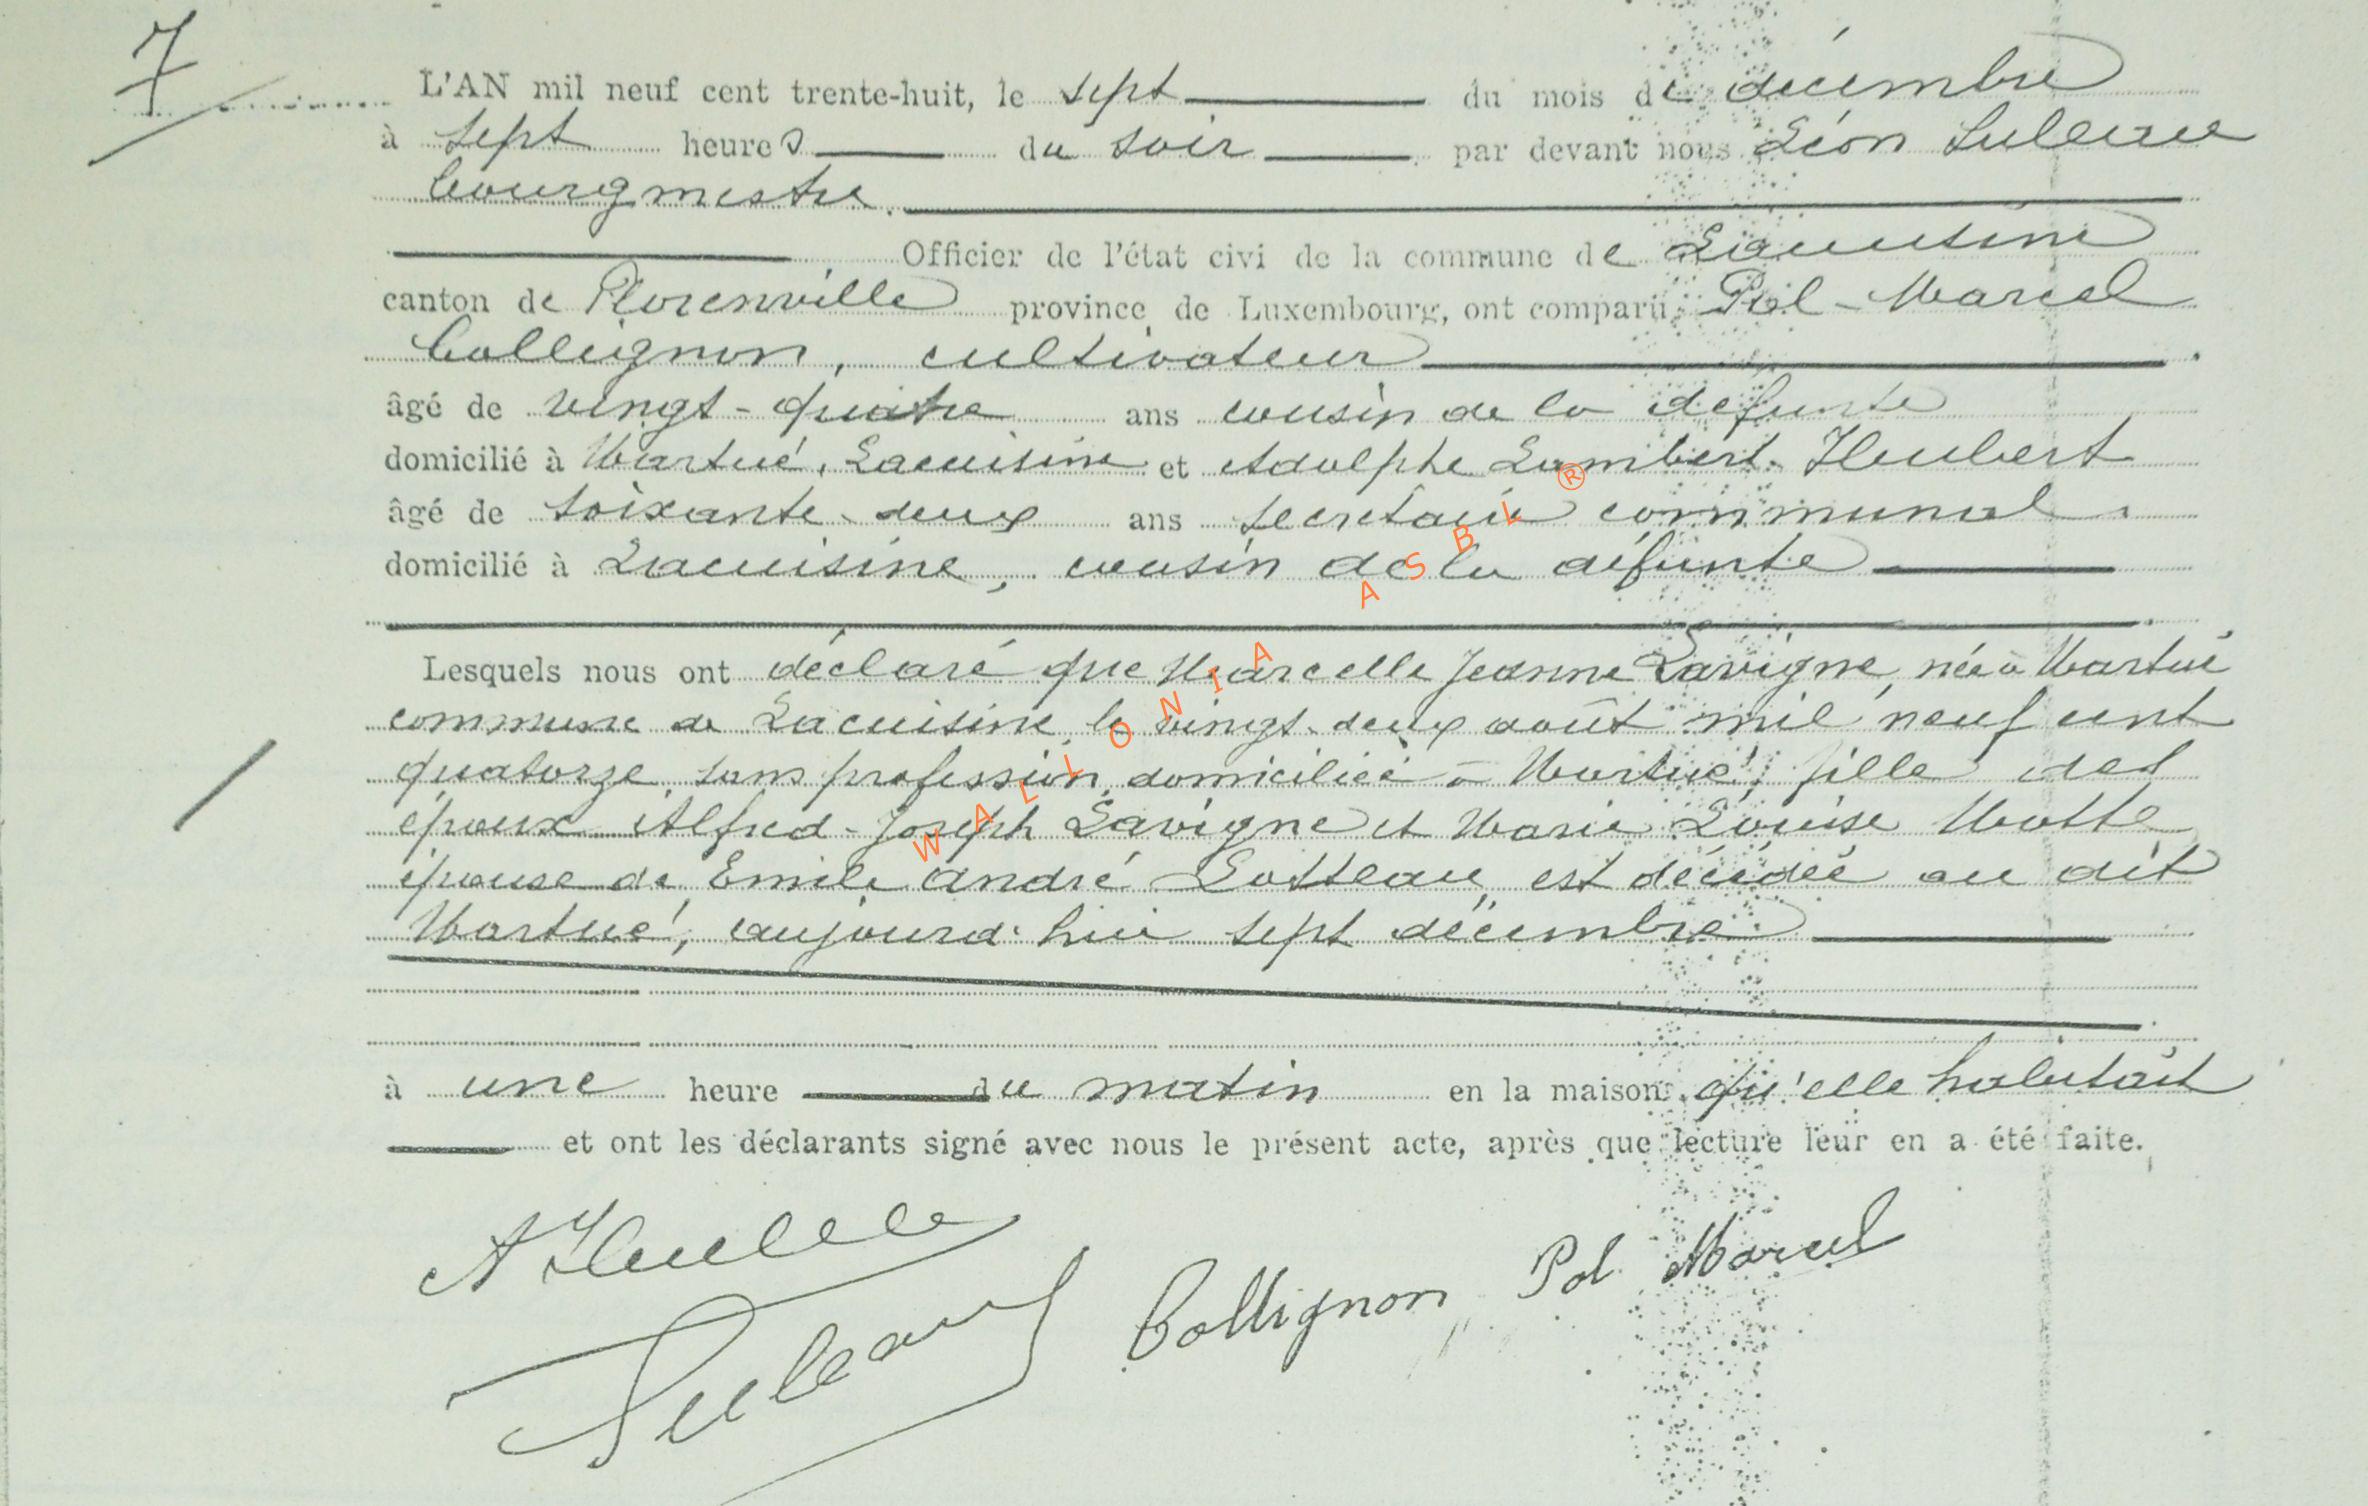 7
L'AN mil neuf cent trente-huit, le sept du mois de décembre
à sept heures du soir par devant nous Léon Suleau
bourgmestre
Officier de l'état civi de la commune de Lacuisine
canton de Florenville province de Luxembourg, ont comparu Pol-Marcel
Collignon, cultivateur
âgé de vingt-quatre ans cousin de la défunte
domicilié à Martué, Lacuisine et Adolphe Lambert Hubert
âgé de soixante-deux ans secrétaire communal.
domicilié à Lacuisine, cousin de la défunte
Lesquels nous ont déclaré que Marcelle Jeanne Lavigne, née à Martué
commune de Lacuisine, le vingt-deux août mil neuf cent
quatorze, sans profession, domiciliée à Martué, fille des
époux Alfred-Joseph Lavigne et Marie Louise Motte
épouse de Emile André Lotteau, est décédée au dit
Martué, aujourd'hui sept décembre
à une heure du matin en la maison qu'elle habitait
et ont les déclarants signé avec nous le présent acte, après que lecture leur en a été faite.
Collignon Pol Marcel
Suleau
WALLONIA ASBL ®